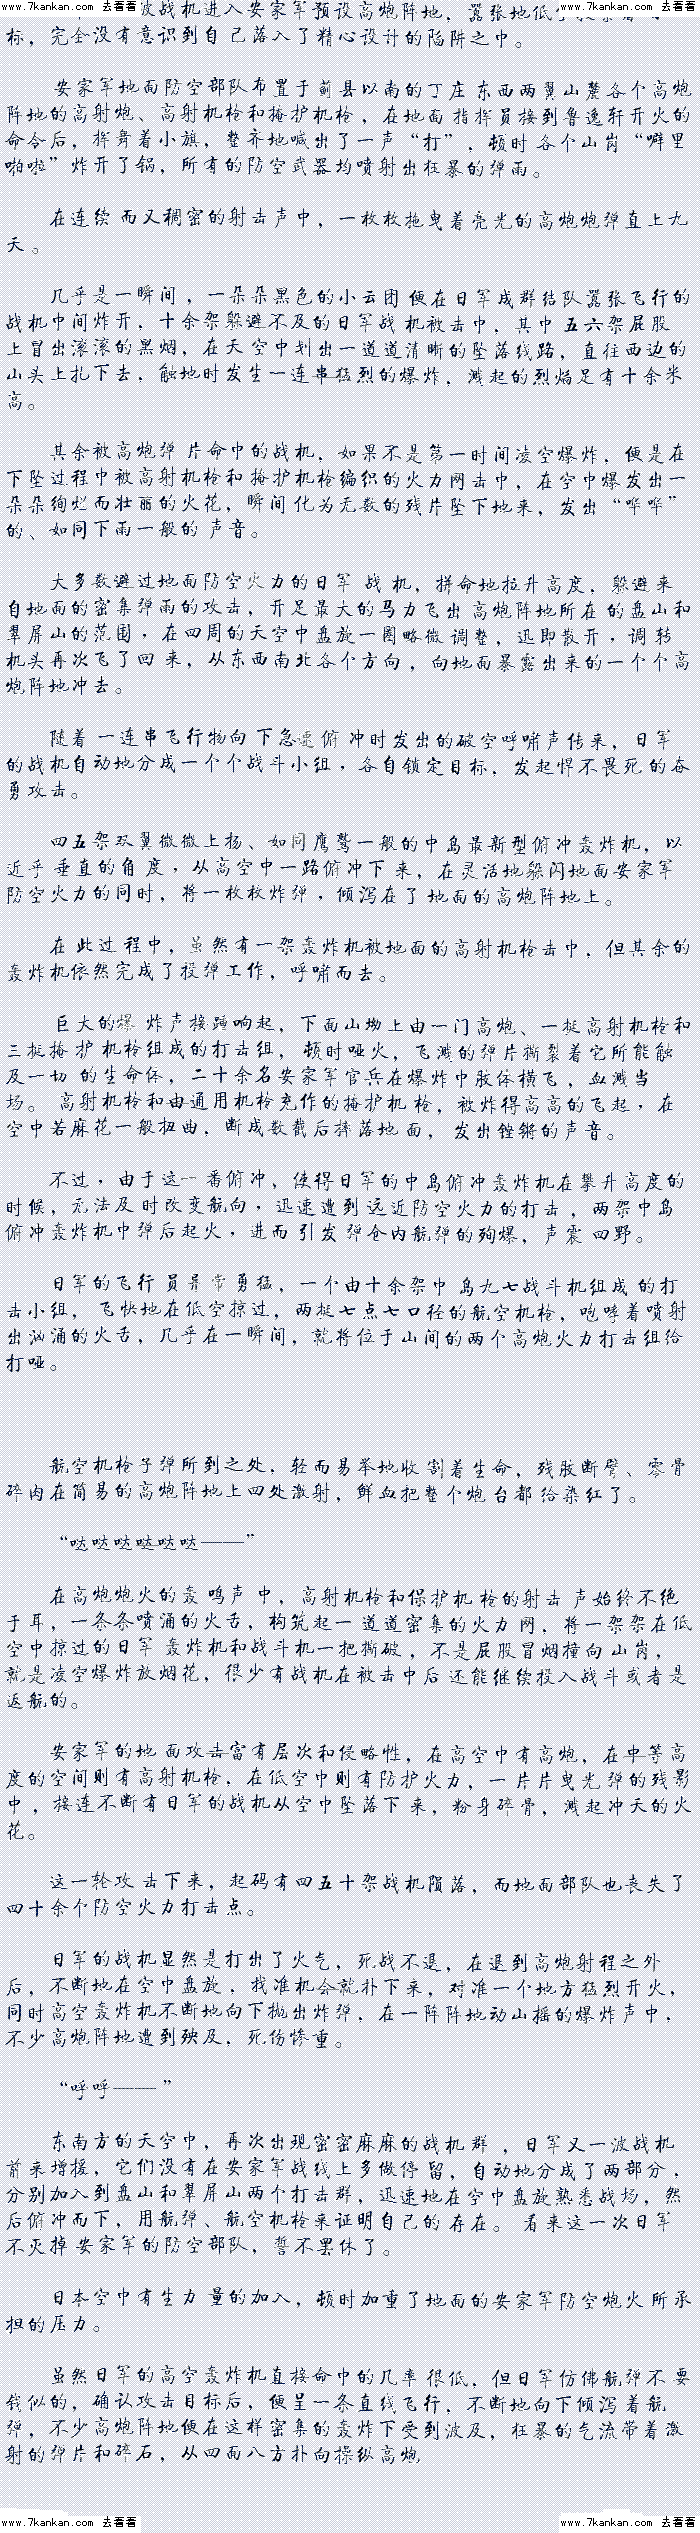 www.7kankan.com 去看看 www.7kankan.com 去看看
波战机进入安家军预设高炮阵地，嚣张地低
标，完全没有意识到自己落入了精心设计的陷阱之中。
安家军地面防空部队布置于蓟县以南的丁庄东西两翼山麓各个高炮
阵地的高射炮、高射机枪和掩护机枪，在地面指挥员接到鲁逸轩开火的
命令后，挥舞着小旗，整齐地喊出了一声“打”，顿时各个山岗“噼里
啪啦”炸开了锅，所有的防空武器均喷射出狂暴的弹雨。
在连续而又稠密的射击声中，一枚枚拖曳着亮光的高炮炮弹直上九
天。
几乎是一瞬间，一朵朵黑色的小云团便在日军成群结队嚣张飞行的
战机中间炸开，十余架躲避不及的日军战机被击中，其中五六架屁股
上冒出滚滚的黑烟，在天空中划出一道道清晰的坠落线路，直往西边的
山头上扎下去，触地时发生一连串猛烈的爆炸，溅起的烈焰足有十余米
高。
其余被高炮弹片命中的战机，如果不是第一时间凌空爆炸，便是在
下坠过程中被高射机枪和掩护机枪编织的火力网击中，在空中爆发出一
朵朵绚烂而壮丽的火花，瞬间化为无数的残片坠下地来，发出“哗哗”
的、如同下雨一般的声音。
大多数避过地面防空火力的日军战机，拼命地拉升高度，躲避来
自地面的密集弹雨的攻击，开足最大的马力飞出高炮阵地所在的盘山和
翠屏山的范围，在四周的天空中盘旋一圈略微调整，迅即散开，调转
机头再次飞了回来，从东西南北各个方向，向地面暴露出来的一个个高
炮阵地冲去。
随着一连串飞行物向下急速俯冲时发出的破空呼啸声传来，日军
的战机自动地分成一个个战斗小组，各自锁定目标，发起悍不畏死的奋
勇攻击。
四五架双翼微微上扬、如同鹰鹫一般的中岛最新型俯冲轰炸机，以
近乎垂直的角度，从高空中一路俯冲下来，在灵活地躲闪地面安家军
防空火力的同时，将一枚枚炸弹，倾泻在了地面的高炮阵地上。
在此过程中，虽然有一架轰炸机被地面的高射机枪击中，但其余的
轰炸机依然完成了投弹工作，呼啸而去。
巨大的爆炸声接踵响起，下面山坳上由一门高炮、一挺高射机枪和
三挺掩护机枪组成的打击组，顿时哑火，飞溅的弹片撕裂着它所能触
及一切的生命体，二十余名安家军官兵在爆炸中肢体横飞，血溅当
场。高射机枪和由通用机枪充作的掩护机枪，被炸得高高的飞起，在
空中若麻花一般扭曲，断成数截后摔落地面，发出铿锵的声音。
不过，由于这一番俯冲，使得日军的中岛俯冲轰炸机在攀升高度的
时候，无法及时改变航向，迅速遭到远近防空火力的打击，两架中岛
俯冲轰炸机中弹后起火，进而引发弹仓内航弹的殉爆，声震四野。
日军的飞行员异常勇猛，一个由十余架中岛九七战斗机组成的打
击小组，飞快地在低空掠过，两挺七点七口径的航空机枪，咆哮着喷射
出汹涌的火舌，几乎在一瞬间，就将位于山间的两个高炮火力打击组给
打哑。
航空机枪子弹所到之处，轻而易举地收割着生命，残肢断臂、零骨
碎肉在简易的高炮阵地上四处激射，鲜血把整个炮台都给染红了。
“哒哒哒哒哒哒——”
在高炮炮火的轰鸣声中，高射机枪和保护机枪的射击声始终不绝
于耳，一条条喷涌的火舌，构筑起一道道密集的火力网，将一架架在低
空中掠过的日军轰炸机和战斗机一把撕破，不是屁股冒烟撞向山岗，
就是凌空爆炸放烟花，很少有战机在被击中后还能继续投入战斗或者是
返航的。
安家军的地面攻击富有层次和侵略性，在高空中有高炮，在中等高
度的空间则有高射机枪，在低空中则有防护火力，一片片曳光弹的残影
中，接连不断有日军的战机从空中坠落下来，粉身碎骨，溅起冲天的火
花。
这一轮攻击下来，起码有四五十架战机陨落，而地面部队也丧失了
四十余个防空火力打击点。
日军的战机显然是打出了火气，死战不退，在退到高炮射程之外
后，不断地在空中盘旋，找准机会就扑下来，对准一个地方猛烈开火，
同时高空轰炸机不断地向下抛出炸弹，在一阵阵地动山摇的爆炸声中，
不少高炮阵地遭到殃及，死伤惨重。
“呼呼——”
东南方的天空中，再次出现密密麻麻的战机群，日军又一波战机
前来增援，它们没有在安家军战线上多做停留，自动地分成了两部分，
分别加入到盘山和翠屏山两个打击群，迅速地在空中盘旋熟悉战场，然
后俯冲而下，用航弹、航空机枪来证明自己的存在。看来这一次日军
不灭掉安家军的防空部队，誓不罢休了。
日本空中有生力量的加入，顿时加重了地面的安家军防空炮火所承
担的压力。
虽然日军的高空轰炸机直接命中的几率很低，但日军仿佛航弹不要
钱似的，确认攻击目标后，便呈一条直线飞行，不断地向下倾泻着航
弹，不少高炮阵地便在这样密集的轰炸下受到波及，狂暴的气流带着激
射的弹片和碎石，从四面八方扑向操纵高炮
www.7kankan.com 去看看 www.7kankan.com 去看看